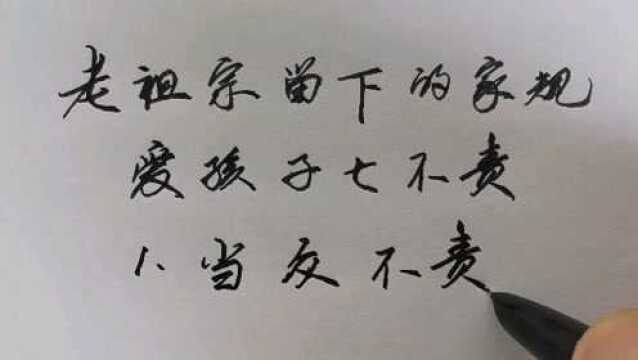 老祖宗留下的家规
爱孩子七不责
1、当众不责